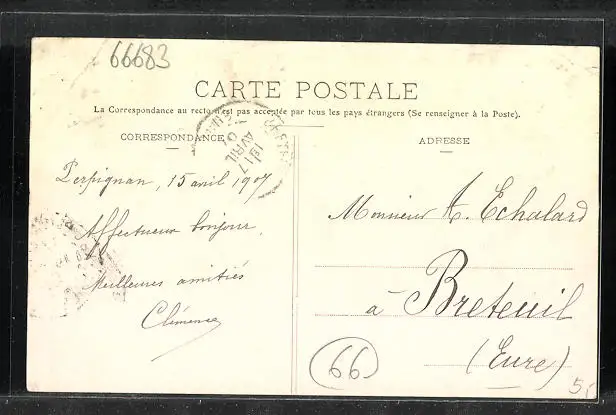 66683
CARTE POSTALE
La Correspondance au recto n'est pas acceptée par tous les pays étrangers (Se renseigner à la Poste).
CORRESPONDANCE
ADRESSE
AVRIL
Perpignan, 15 avril 1907
Affectueux bonjour.
Meilleures amitiés
Clémence
Monsieur A. Echalard
à Breteuil
(Eure)
66
5